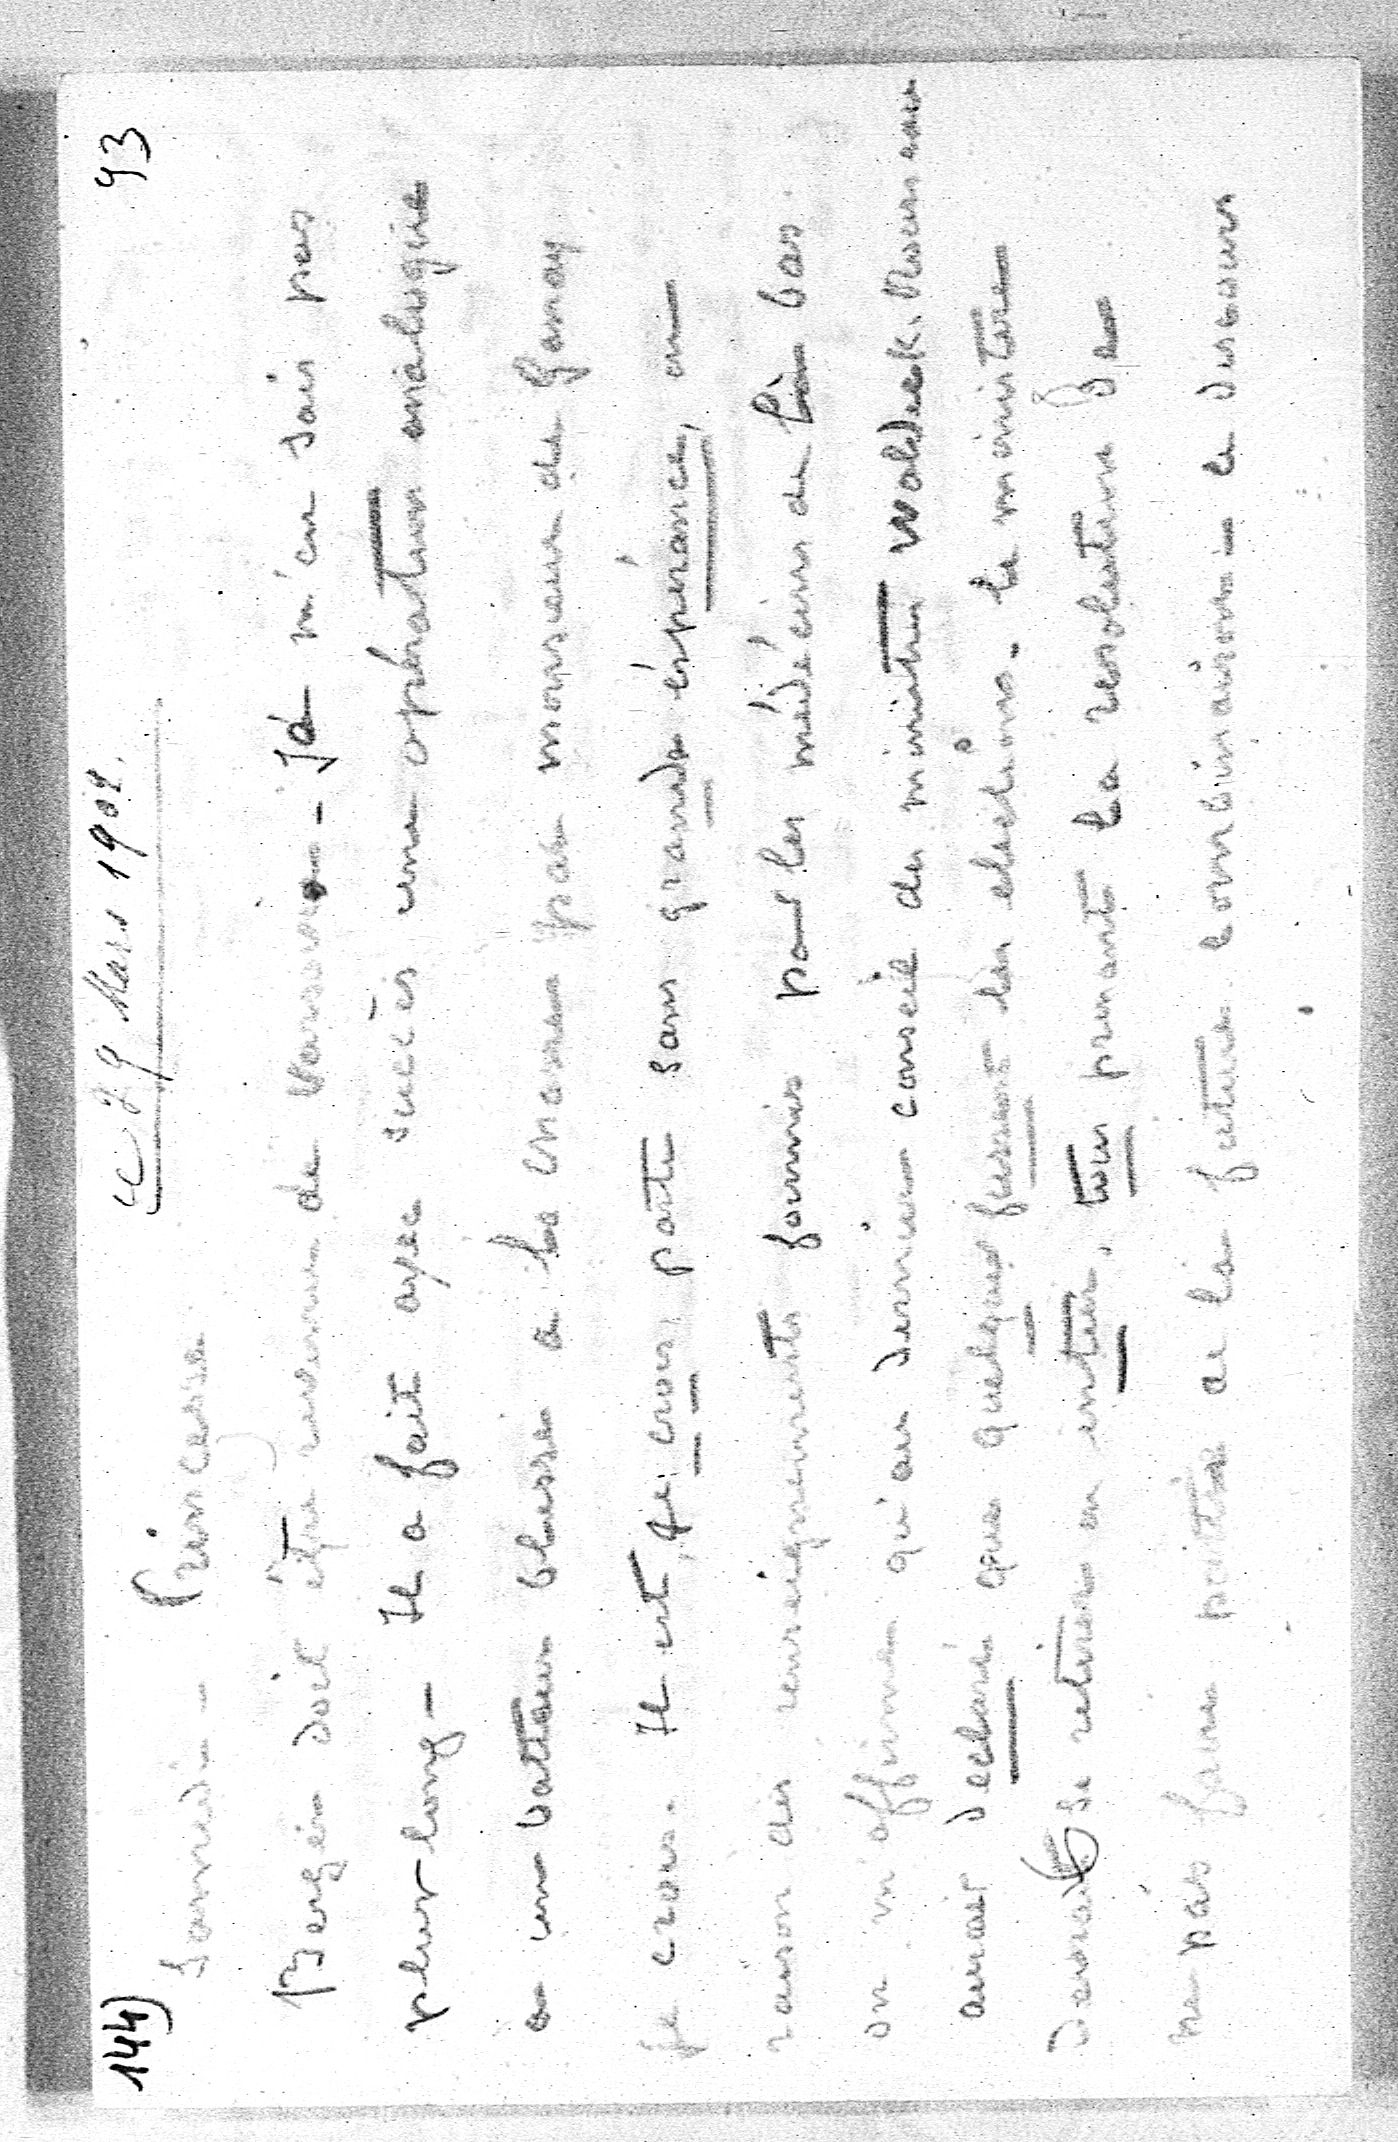 144) 93
« 29 Mars 1902.
Samedi – Princesse
Berger doit être revenu de Varsovie – Je m'en suis pas
plus long – Il a fait avec succès une opération analogue
a un batteur blessé a la chasse par monsieur de Ganay
je crois. Il est, je crois, parti sans grande éspérance, en
raison des renseignements fournis par les médécins de là bas.
on m'affirme qu'au dernier conseil des ministres Waldeck. Rousseau
aurait declaré que quelques fussent les elections. le ministère
devrait se retirer en entier, tous prenant la resolution de
ne pas faire partie de la future combinaison – le discours